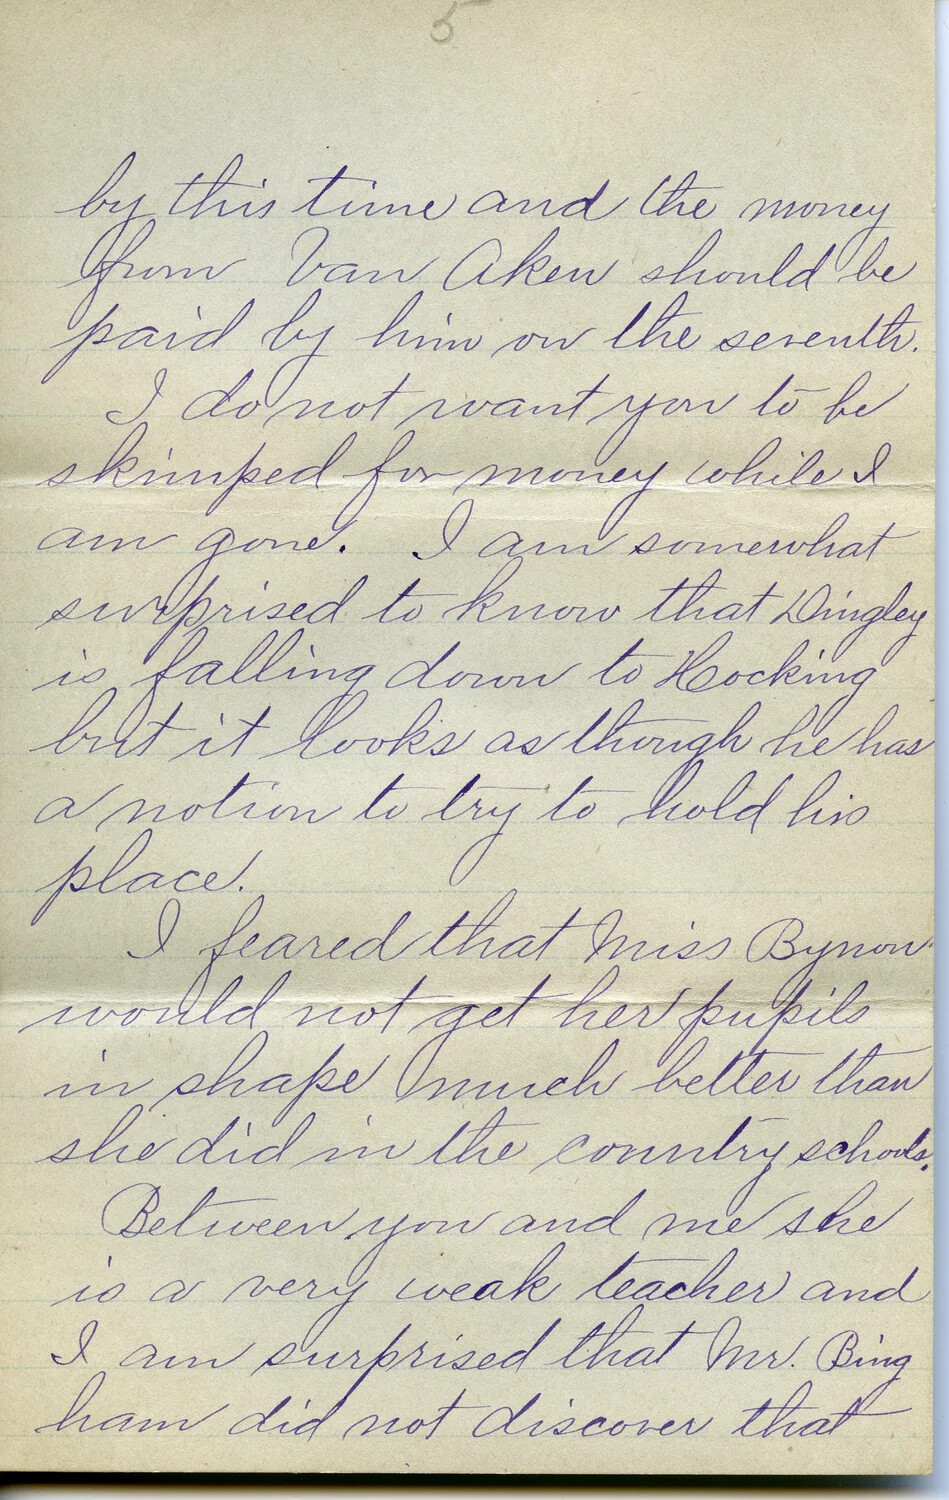 5
by this time and the money
from Van Aken should be
paid by him on the seventh.
I do not want you to be
skimped for money while I
am gone. I am somewhat
surprised to know that Dingley
is falling down to Hocking
but it looks as though he has
a notion to try to hold his
place.
I feared that Miss Bynon
would not get her pupils
in shape much better than
she did in the country schools.
Between you and me she
is a very weak teacher and
I am surprised that Mr. Bing
ham did not discover that